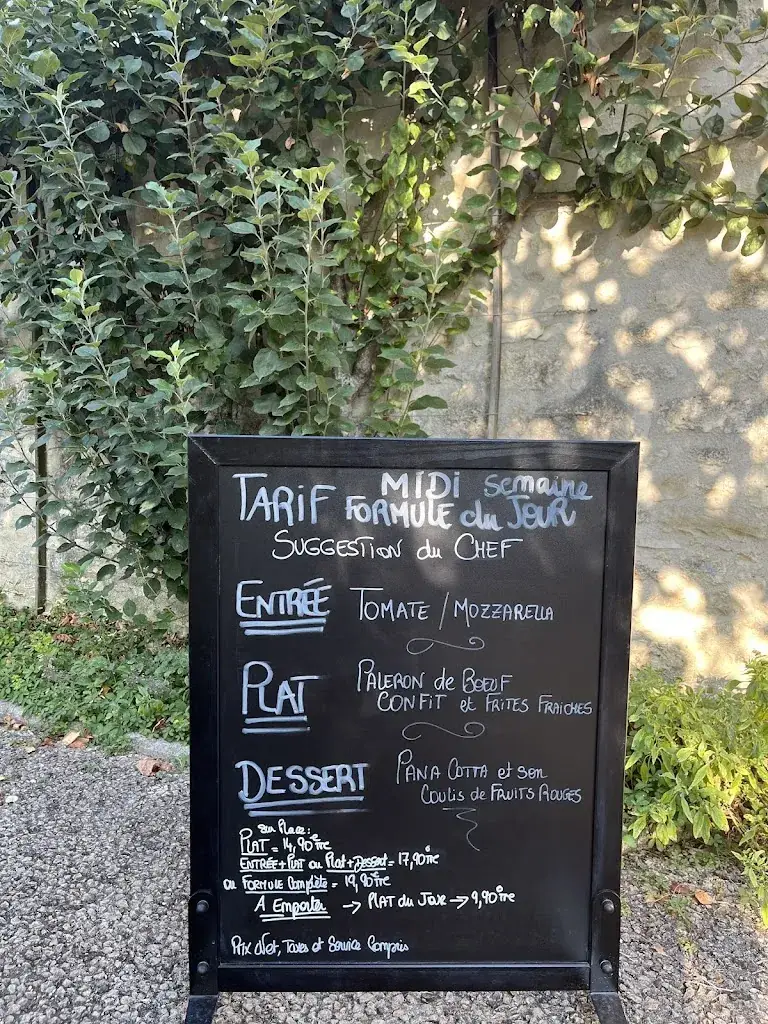 MIDI semaine
TARIF FORMULE du JOUR
SUGGESTION du CHEF
ENTRÉE TOMATE / MOZZARELLA
PLAT PALERON de BOEUF
CONFIT et FRITES FRAICHES
DESSERT PANA COTTA et son
Coulis de FRUITS ROUGES
sur Place:
PLAT = 14,90€ TTC
ENTRÉE+PLAT ou Plat+Dessert = 17,90€ TTC
ou FORMULE Complète = 19,90€ TTC
A Emporter → PLAT du Jour → 9,90€ TTC
Prix Net, Taxes et Service Compris